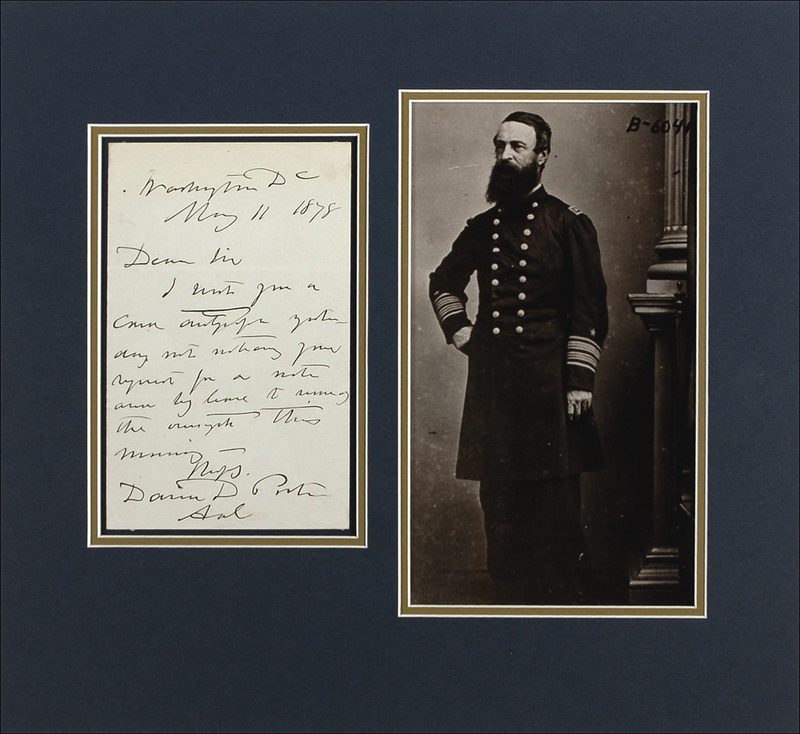 Washington DC
May 11 1878
Dear Sir
I sent you a
autograph yester-
day not noticing your
request for a note
and beg leave to remedy
the oversight this
morning
David D Porter
Adl
B-6041